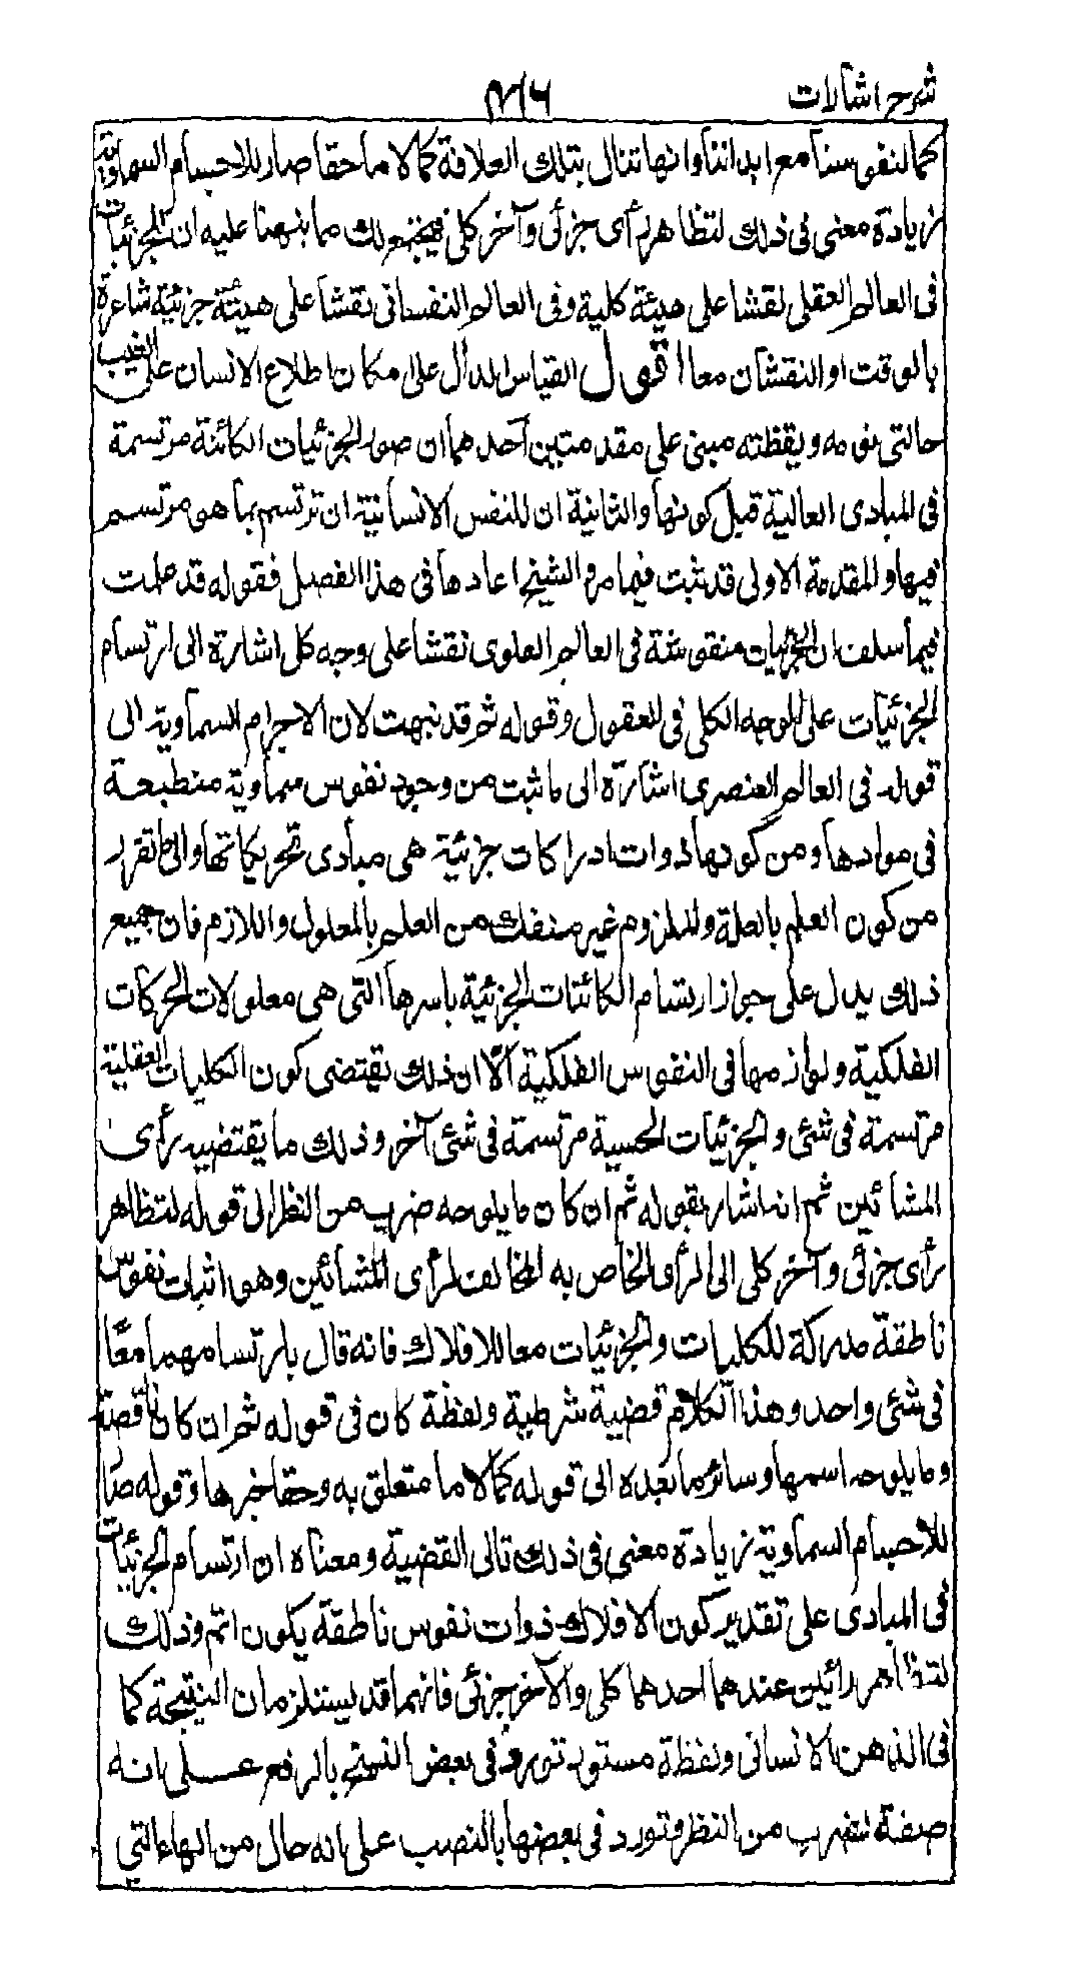 شرح اشارات
كما لنفوسنا مع ابداننا وانها تنال بتلك العلاقة كمالا ما حقا صار للاجسام السماوية
زيادة معنى فى ذلك لتظاهر رأى جزئى وآخر كلى فيجتمع لك مما نبهنا عليه ان للجزئيات
فى العالم العقلى نقشا على هيئة كلية وفى العالم النفسانى نقشا على هيئة جزئية شاعرة
بالوقت او النقشان معا اقول القياس الدال على امكان اطلاع الانسان على الغيب
حالتى نومه ويقظته مبنى على مقدمتين احدهما ان صور الجزئيات الكائنة مرتسمة
فى المبادى العالية قبل كونها والثانية ان للنفس الانسانية ان ترتسم بما هو مرتسم
فيها والمقدمة الاولى قد ثبت فيما مر والشيخ اعادها فى هذا الفصل فقوله قد علمت
فيما سلف ان الجزئيات منقوشة فى العالم العلوى نقشا على وجه كل اشارة الى ارتسام
الجزئيات على الوجه الكلى فى العقول وقوله ثم قد نبهت لان الاجرام السماوية الى
قوله فى العالم العنصرى اشارة الى ما ثبت من وجود نفوس سماوية منطبعة
فى موادها ومن كونها ذوات ادراكات جزئية هى مبادى تحريكاتها والى ما تقرر
من كون العلم بالعلة والملزوم غير منفك من العلم بالمعلول واللازم فان جميع
ذلك يدل على جواز ارتسام الكائنات الجزئية باسرها التى هى معلولات الحركات
الفلكية ولوازمها فى النفوس الفلكية الا ان ذلك يقتضى كون الكليات العقلية
مرتسمة فى شئ والجزئيات الحسية مرتسمة فى شئ آخر وذلك ما يقتضيه رأى
المشائين ثم انه اشار بقوله ثم ان كان ما يلوحه ضرب من النظر الى قوله لتظاهر
رأى جزئى وآخر كلى الى الرأى الخاص به المخالف لرأى المشائين وهو اثبات نفوس
ناطقة مدركة للكليات والجزئيات معا للافلاك فانه قال بارتسامهما معًا
فى شئ واحد وهذا الكلام قضية شرطية ولفظة كان فى قوله ثم ان كان ناقصة
وما يلوحه اسمها وسائر ما بعده الى قوله كمالا ما متعلق به وحقا خبرها وقوله صار
للاجسام السماوية زيادة معنى فى ذلك تالى القضية ومعناه ان ارتسام الجزئيات
فى المبادى على تقدير كون الافلاك ذوات نفوس ناطقة يكون اتم وذلك
لتظاهر رائين عندهما احدهما كلى والآخر جزئى فانهما قد يستلزمان النتيجة كما
فى الذهن الانسانى ولفظة مستور تورد فى بعض النسخ بالرفع على انه
صفة لضرب من النظر وتورد فى بعضها بالنصب على انه حال من الهاء التى